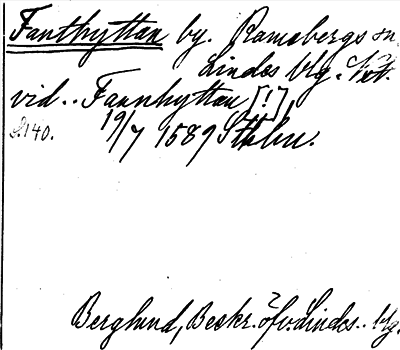 Fanthyttan by. Ramsbergs sn.
Lindes blg. Nst.
vid.. Fannhyttan [!]
S. 140. 19/7 1589 Sthlm.
Berglund, Beskr. öfv. Lindes.. blg.